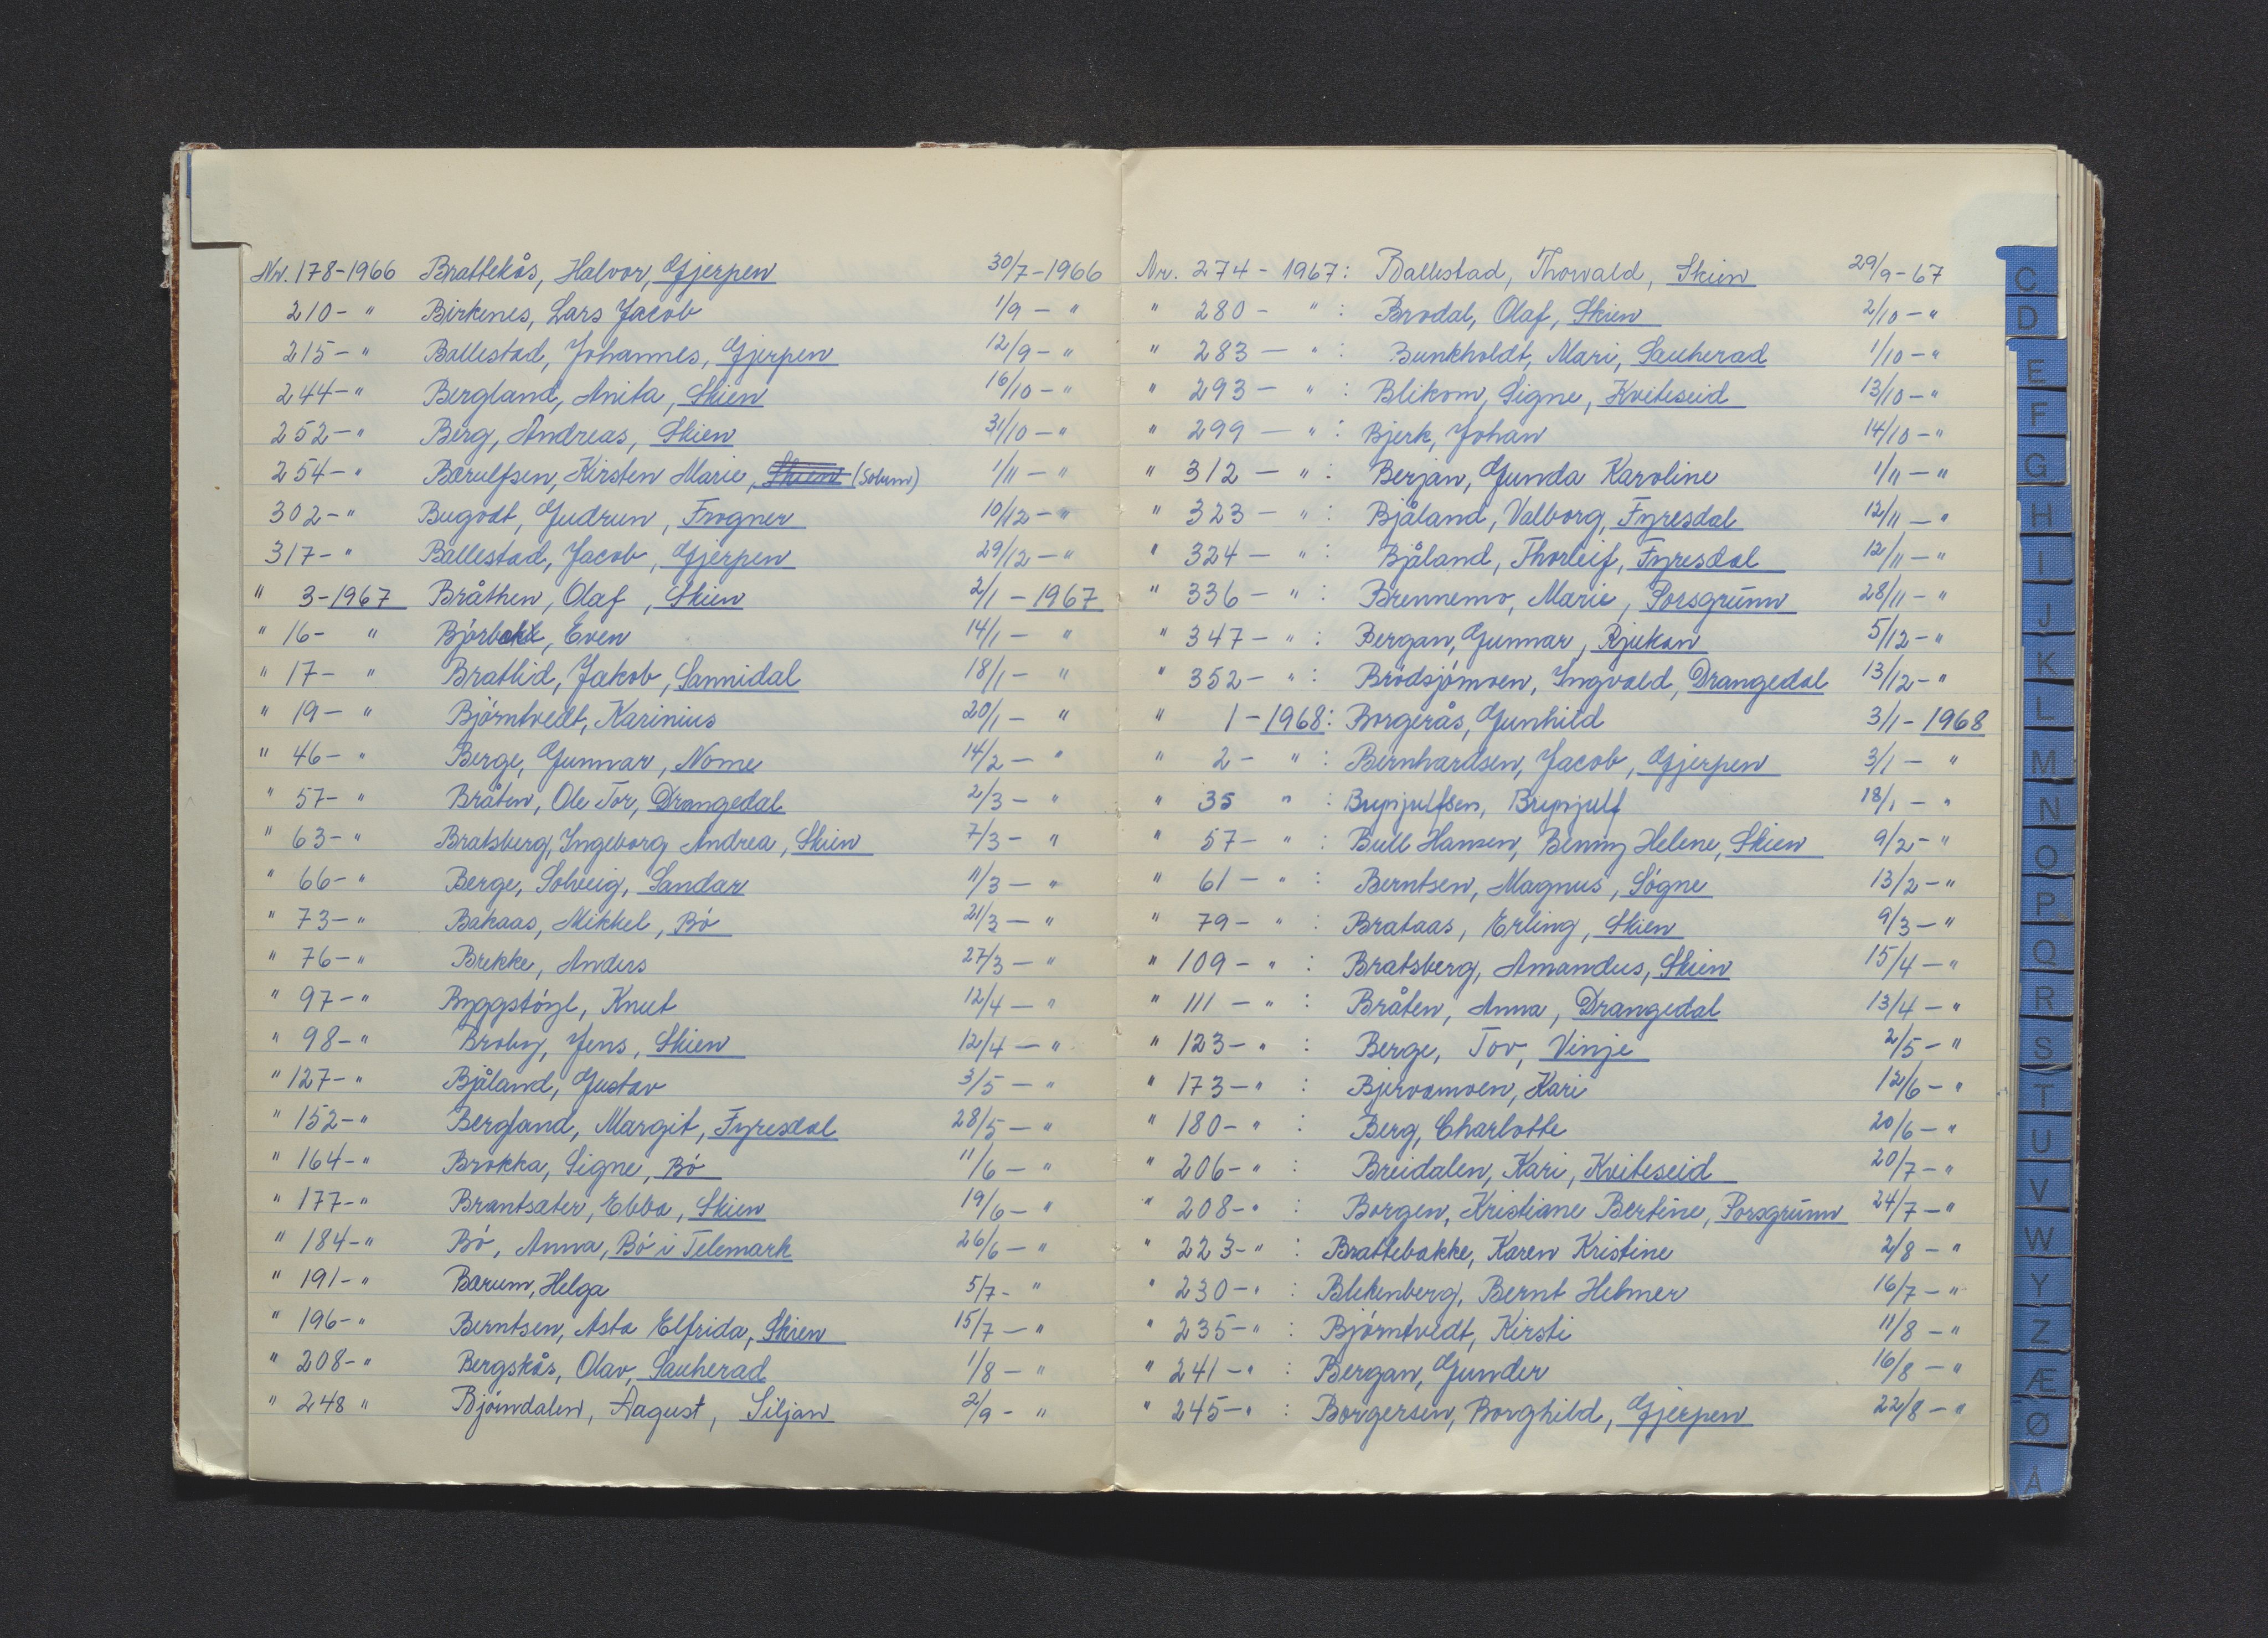 Nr. 178-1966 Brattekås, Halvor, Gjerpen 30/7-1966
210- " Birkenes, Lars Jacob 1/9 - "
215- " Ballestad, Johannes, Gjerpen 12/9- "
244- " Bergland, Anita, Skien 16/10- "
252- " Berg, Andreas, Skien 31/10- "
254- " Bærulfsen, Kirsten Marie, Skien (Solum) 1/11- "
302- " Bugodt, Gudrun, Frogner 10/12- "
317- " Ballestad, Jacob, Gjerpen 29/12- "
" 3-1967 Bråthen, Olaf, Skien 2/1-1967
" 16- " Even 14/1- "
" 17- " Bratlid, Jakob, Sannidal 18/1- "
" 19- " Bjørntvedt, Karinius 20/1- "
" 46- " Berge, Gunnar, Nome 14/2- "
" 57- " Bråten, Ole Tor, Drangedal 2/3- "
" 63- " Bratsberg, Ingeborg Andrea, Skien 7/3- "
" 66- " Berge, Solveig, Sandar 11/3- "
" 73- " Bakaas, Mikkel, Bø 21/3- "
" 76- " Brekke, Anders 27/3- "
" 97- " Byggstøyl, Knut 12/4- "
" 98- " Broby, Jens, Skien 12/4- "
" 127- " Bjåland, Gustav 3/5- "
" 152- " Bergland, Margit, Fyresdal 28/5- "
" 164- " Brokka, Signe, Bø 11/6- "
" 177- " Brantsæter, Ebba, Skien 19/6- "
" 184- " Bø, Anna, Bø i Telemark 26/6- "
" 191- " Bærum, Helga 5/7- "
" 196- " Berntsen, Asta Elfrida, Skien 15/7- "
" 208- " Bergskås, Olav, Sauherad 1/8- "
" 248 " Bjørndalen, Aagust, Siljan 2/9- "
Nr. 274-1967: Ballestad, Thorvald, Skien 29/9-67
" 280- " : Brodal, Olaf, Skien 2/10- "
" 283- " : Bunkholdt, Mari, Sauherad 1/10- "
" 293- " : Blikom, Signe, Kviteseid 13/10- "
" 299- " : Bjerk, Johan 14/10- "
" 312- " : Berjan, Gunda Karoline 1/11- "
" 323- " : Bjåland, Valborg, Fyresdal 12/11- "
" 324- " : Bjåland, Thorleif, Fyresdal 12/11- "
" 336- " : Brennemo, Marie, Porsgrunn 28/11- "
" 347- " : Bergan, Gunnar, Rjukan 5/12- "
" 352- " : Brødsjømoen, Ingvald, Drangedal 13/12- "
" 1-1968: Borgerås, Gunhild 3/1-1968
" 2- " : Bernhardsen, Jacob, Gjerpen 3/1- "
" 35 " : Brynjulfsen, Brynjulf 18/1- "
" 57- " : Bull Hansen, Benny Helene, Skien 9/2- "
" 61- " : Berntsen, Magnus, Søgne 13/2- "
" 79- " : Brataas, Erling, Skien 9/3- "
" 109- " : Bratsberg, Amandus, Skien 15/4- "
" 111- " : Bråten, Anna, Drangedal 13/4- "
" 123- " : Berge, Tov, Vinje 2/5- "
" 173- " : Bjervamoen, Kari 12/6- "
" 180- " : Berg, Charlotte 20/6- "
" 206- " : Breidalen, Kari, Kviteseid 20/7- "
" 208- " : Borgen, Kristiane Bertine, Porsgrunn 24/7- "
" 223- " : Brattebakke, Karen Kristine 2/8- "
" 230- " : Blekenberg, Bernt Helmer 16/7- "
" 235- " : Bjørntvedt, Kirsti 11/8- "
" 241- " : Bergan, Gunder 16/8- "
" 245- " : Borgersen, Borghild, Gjerpen 22/8- "
C
D
E
F
G
H
I
J
K
L
M
N
O
P
Q
R
S
T
U
V
W
Y
Z
Æ
Ø
Å